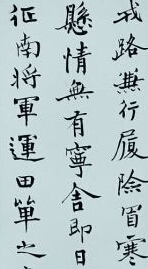 戎路兼行履險冒寒
懸情無有寧舍即日
征南将軍運田單之